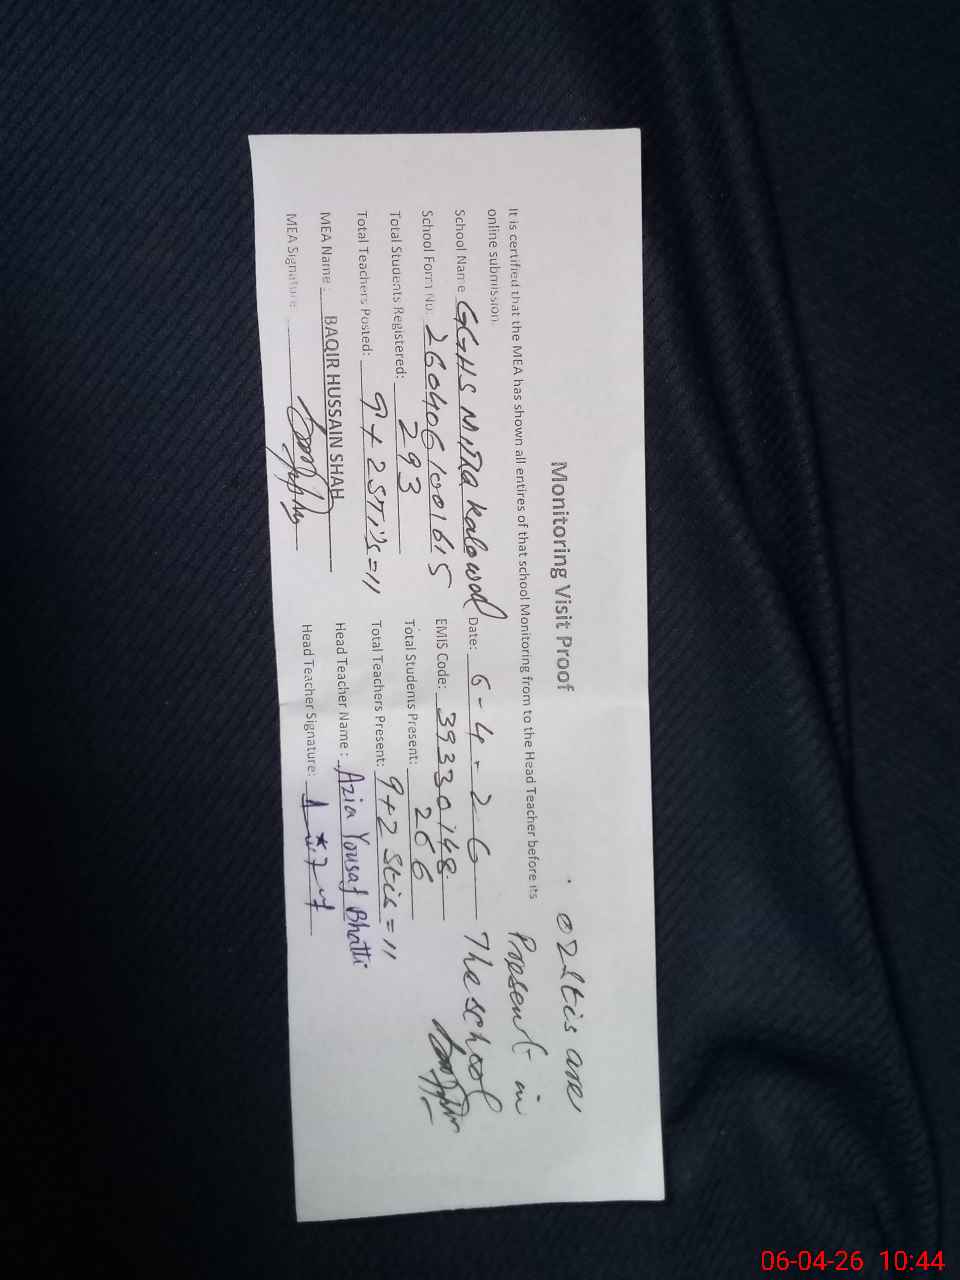 Monitoring Visit Proof
It is certified that the MEA has shown all entires of that school Monitoring from to the Head Teacher before its
online submission.
School Name GGHS Mitra Kalowal Date: 6-4-26
School Form No. 2604061001615 EMIS Code: 39330148
Total Students Registered: 293 Total Students Present: 266
Total Teachers Posted: 9+2STI's=11 Total Teachers Present: 9+2 Stis=11
MEA Name: BAQIR HUSSAIN SHAH Head Teacher Name: Azia Yousaf Bhatti
MEA Signature: Head Teacher Signature:
02 Stis are
Present in
The school
06-04-26 10:44